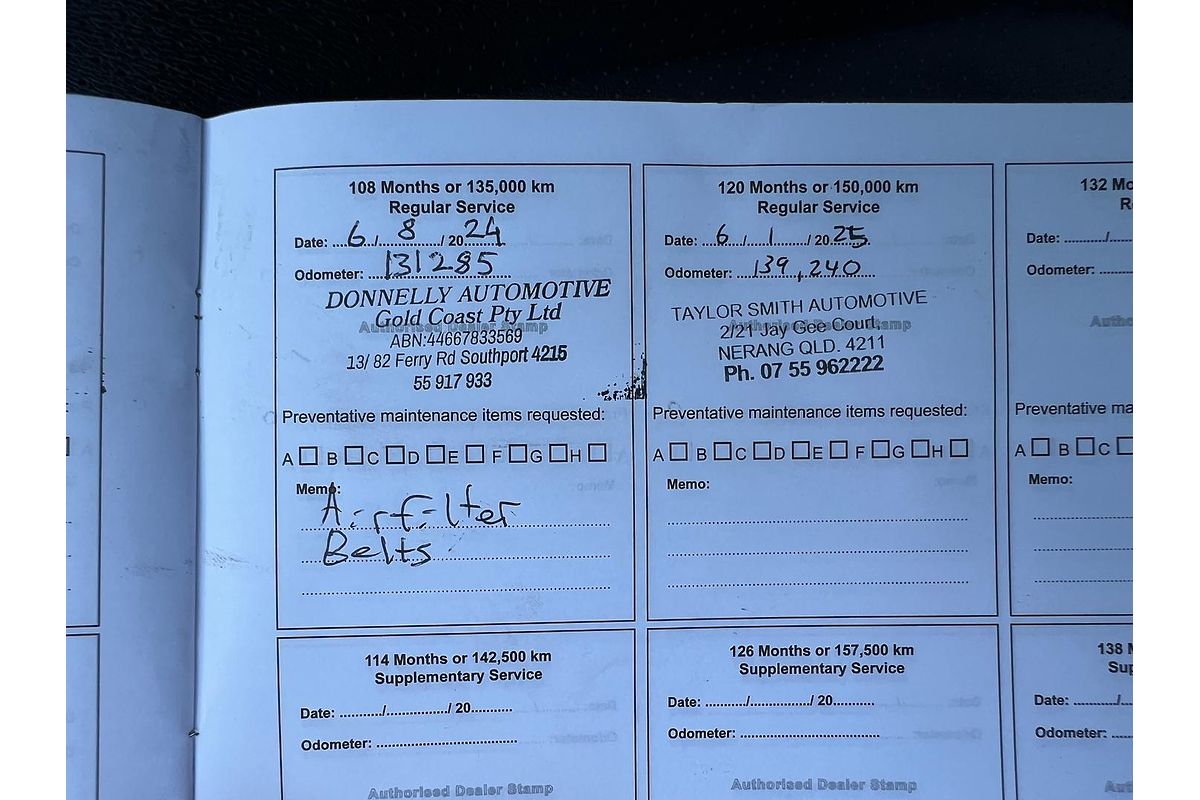 108 Months or 135,000 km
Regular Service
Date: 6 / 8 / 2024
Odometer: 131285
DONNELLY AUTOMOTIVE
Gold Coast Pty Ltd
Authorised Dealer Stamp
ABN:44667833569
13/ 82 Ferry Rd Southport 4215
55 917 933
Preventative maintenance items requested:
A B C D E F G H
Memo:
Air filter
Belts
120 Months or 150,000 km
Regular Service
Date: 6 / 1 / 2025
Odometer: 139,240
TAYLOR SMITH AUTOMOTIVE
2/21 Jay Gee Court,
NERANG QLD. 4211
Ph. 07 55 962222
Preventative maintenance items requested:
A B C D E F G H
Memo:
132 Mo
R
Date: / 
Odometer:
Autho
Preventative ma
A B C
Memo:
114 Months or 142,500 km
Supplementary Service
Date: / / 20
Odometer:
Authorised Dealer Stamp
126 Months or 157,500 km
Supplementary Service
Date: / / 20
Odometer:
Authorised Dealer Stamp
138 M
Sup
Date: /
Odometer:
Aut